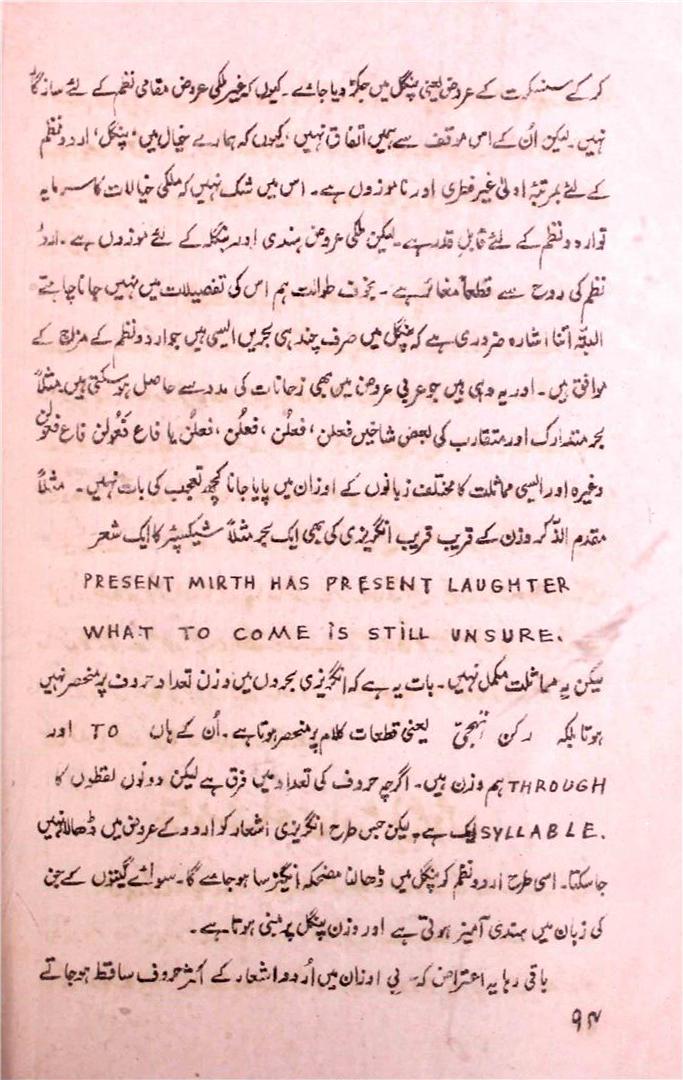 کر کے سنسکرت کے عروض یعنی پنگل میں جکڑ دیا جائے۔ کیوں کہ غیر ملکی عروض مقامی نظم کے لئے سازگار
نہیں۔ لیکن اُن کے اس موقف سے ہمیں اتفاق نہیں، کیوں کہ ہمارے خیال میں، پنگل، اردو نظم
کے لئے بمرتبۂ اولیٰ غیر فطری اور نا موزوں ہے۔ اس میں شک نہیں کہ ملکی خیالات کا سرمایہ
تو اردو نظم کے لئے قابلِ قدر ہے۔ لیکن ملکی عروض ہندی اور بنگلہ کے لئے موزوں ہے۔ اردو
نظم کی روح سے قطعاً مغائر ہے۔ بخوفِ طوالت ہم اس کی تفصیلات میں نہیں جانا چاہتے
البتہ اتنا اشارہ ضروری ہے کہ پنگل میں صرف چند ہی بحریں ایسی ہیں جو اردو نظم کے مزاج کے
موافق ہیں۔ اور یہ وہی ہیں جو عربی عروض میں بھی زحافات کی مدد سے حاصل ہو سکتی ہیں مثلاً
بحر متدارک اور متقارب کی بعض شاخیں فعلن، فعلُن، فعلُن، فعلُن یا فاع فعولن فاع فعولن
وغیرہ اور ایسی مماثلت کا مختلف زبانوں کے اوزان میں پایا جانا کچھ تعجب کی بات نہیں۔ مثلاً
مقدم الذکر وزن کے قریب قریب انگریزی کی بھی ایک بحر مثلاً شیکسپئر کا ایک شعر
PRESENT MIRTH HAS PRESENT LAUGHTER
WHAT TO COME IS STILL UNSURE.
لیکن یہ مماثلت مکمل نہیں۔ بات یہ ہے کہ انگریزی بحروں میں وزن تعداد حروف پر منحصر نہیں
ہوتا بلکہ رکن تہجی یعنی قطعات کلام پر منحصر ہوتا ہے۔ اُن کے ہاں TO اور
THROUGH ہم وزن ہیں۔ اگرچہ حروف کی تعداد میں فرق ہے لیکن دونوں لفظوں کا
SYLLABLE. ایک ہے۔ لیکن جس طرح انگریزی اشعار کو اردو کے عروض میں ڈھالا نہیں
جا سکتا۔ اسی طرح اردو نظم کو پنگل میں ڈھالنا مضحکہ انگیز سا ہو جائے گا۔ سوائے گیتوں کے جن
کی زبان میں ہندی آمیز ہوتی ہے اور وزن پنگل پر مبنی ہوتا ہے۔
باقی رہا یہ اعتراض کہ بی اوزان میں اُردو اشعار کے اکثر حروف ساقط ہو جاتے
۹۴